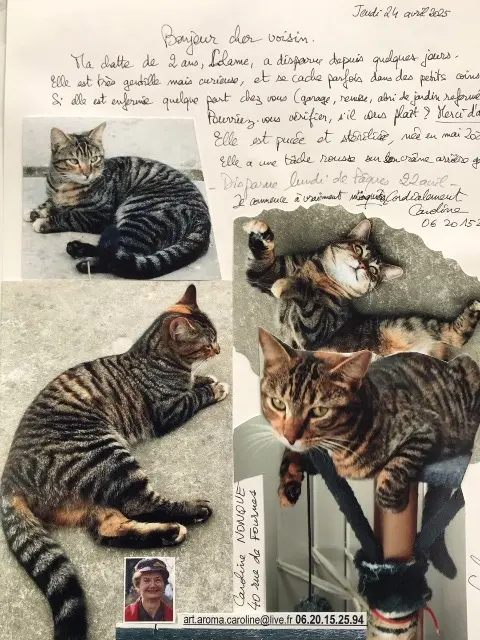 Jeudi 24 avril 2025
Bonjour cher voisin.
Ma chatte de 2 ans, a disparu depuis quelques jours.
Elle est très gentille mais curieuse, et se cache parfois dans des petits coins
Si elle est enfermée quelque part chez vous (garage, remise, abri de jardin refermé
Pourriez-vous vérifier, s'il vous plaît ? Merci d'a
Elle est pucée et stérilisée, née en mai 202
Elle a une tâche rousse sur le crâne arrière g
- Disparue lundi de Pâques 22 avril -
Je commence à vraiment Cordialement
Caroline
06 20 152
Caroline NONQUE
40 rue de Fournes
art.aroma.caroline@live.fr 06.20.15.25.94